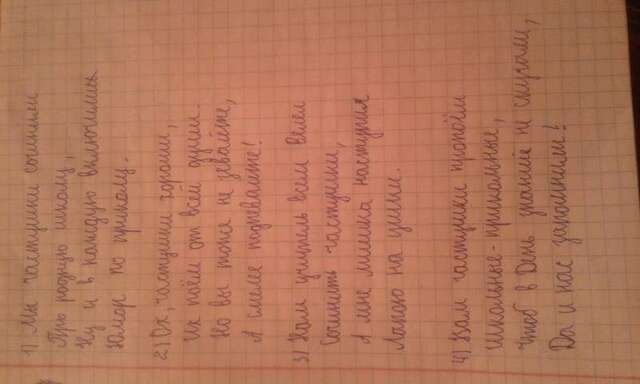 1) Мы частушки сочинили
Про родную школу,
Ну и в каждую включились
Юмор по приколу.
2) Ох, частушки хороши,
Их поём от всей души.
Но вы тоже не зевайте,
А смелее подпевайте!
3) Нам учитель всем велел
Сочинить частушки,
А мне мишка наступил
Лапою на ушки.
4) Вам частушки пропоём
Школьные-прикольные,
Чтоб в День знаний не скучали,
Да и нас запомнили!